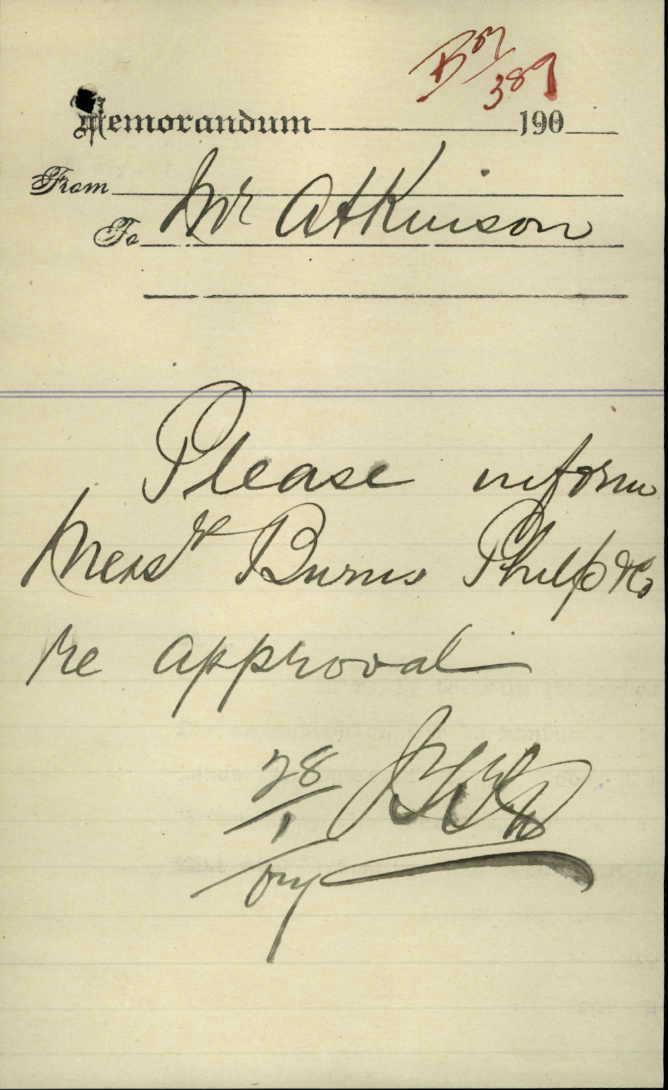 B07
389
Memorandum 190
From
To Mr Atkinson
Please inform
Messrs Burns Philp & Co
re approval
28
1
07